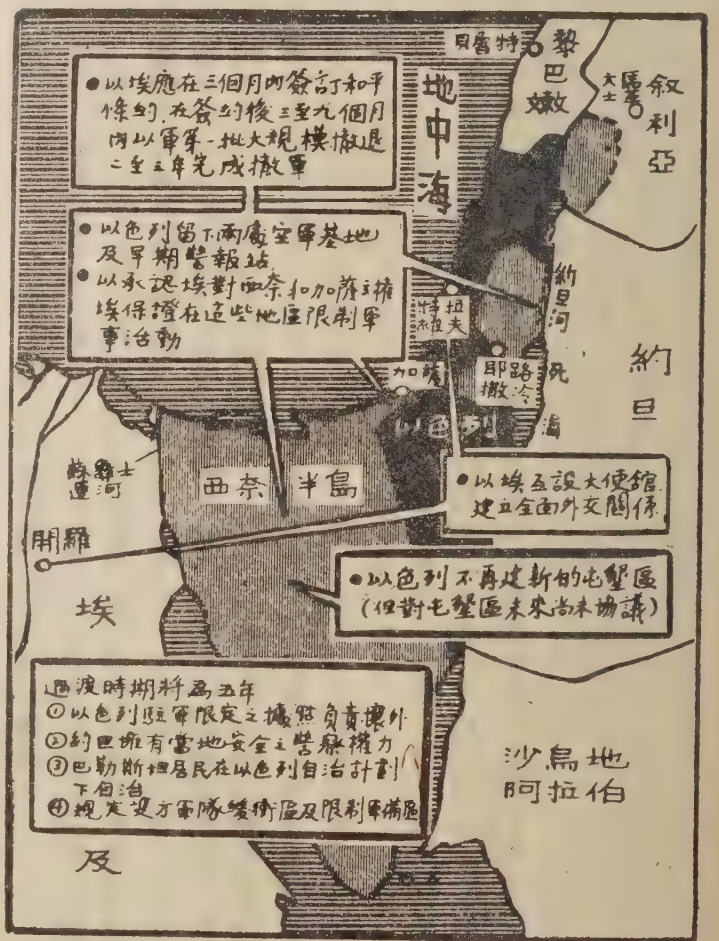 貝魯特
黎巴嫩
大馬士
敘利亞
地中海
●以埃應在三個月內簽訂和平
條約,在簽約後三至九個月
內以軍第一批大規模撤退
二至三年完成撤軍
●以色列留下兩處空軍基地
及早期警報站
●以承認埃對西奈和加薩主權
埃保證在這些地區限制軍
事活動
約旦河
特拉維夫
耶路撒冷
死海
約旦
加薩
以色列
蘇彝士運河
西奈半島
開羅
●以埃互設大使館
建立全面外交關係
●以色列不再建新的屯墾區
(但對屯墾區未來尚未協議)
埃及
過渡時期將為五年
①以色列駐軍限定之據點負責壞外
②約旦擁有當地安全之警察權力
③巴勒斯坦居民在以色列自治計劃
下自治
④規定雙方軍隊緩衝區及限制軍備區
沙烏地
阿拉伯